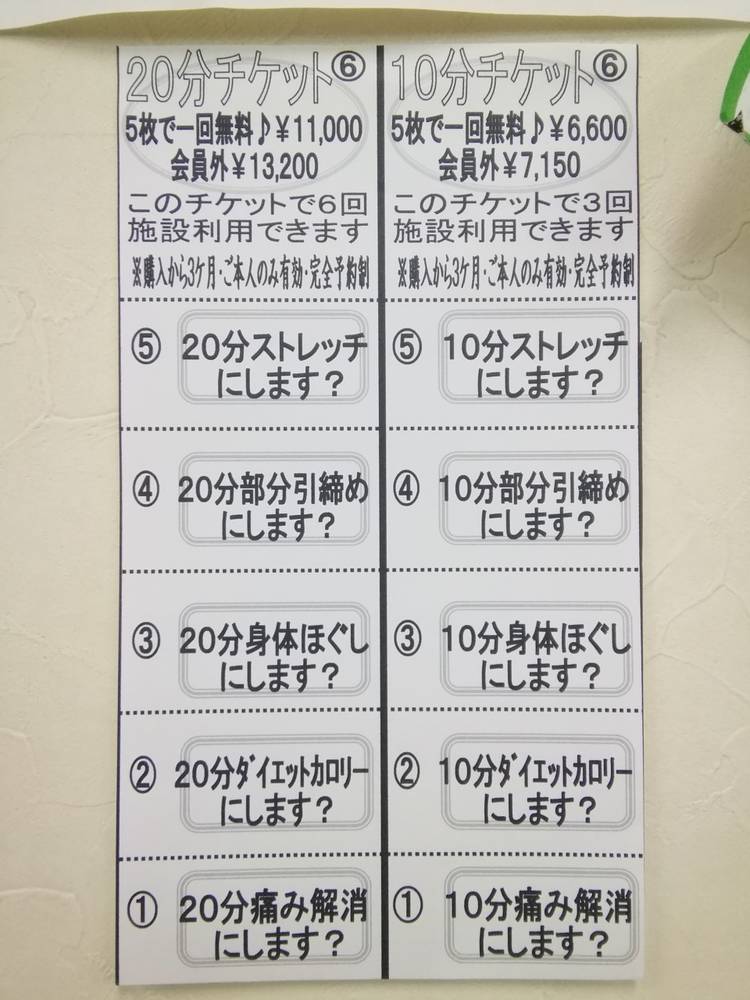 20分チケット⑥
5枚で一回無料♪¥11,000
会員外¥13,200
このチケットで6回
施設利用できます
※購入から3ケ月・ご本人のみ有効・完全予約制
⑤ 20分ストレッチ
にします？
④ 20分部分引締め
にします？
③ 20分身体ほぐし
にします？
② 20分ダイエットカロリー
にします？
① 20分痛み解消
にします？
10分チケット⑥
5枚で一回無料♪¥6,600
会員外¥7,150
このチケットで3回
施設利用できます
※購入から3ケ月・ご本人のみ有効・完全予約制
⑤ 10分ストレッチ
にします？
④ 10分部分引締め
にします？
③ 10分身体ほぐし
にします？
② 10分ダイエットカロリー
にします？
① 10分痛み解消
にします？